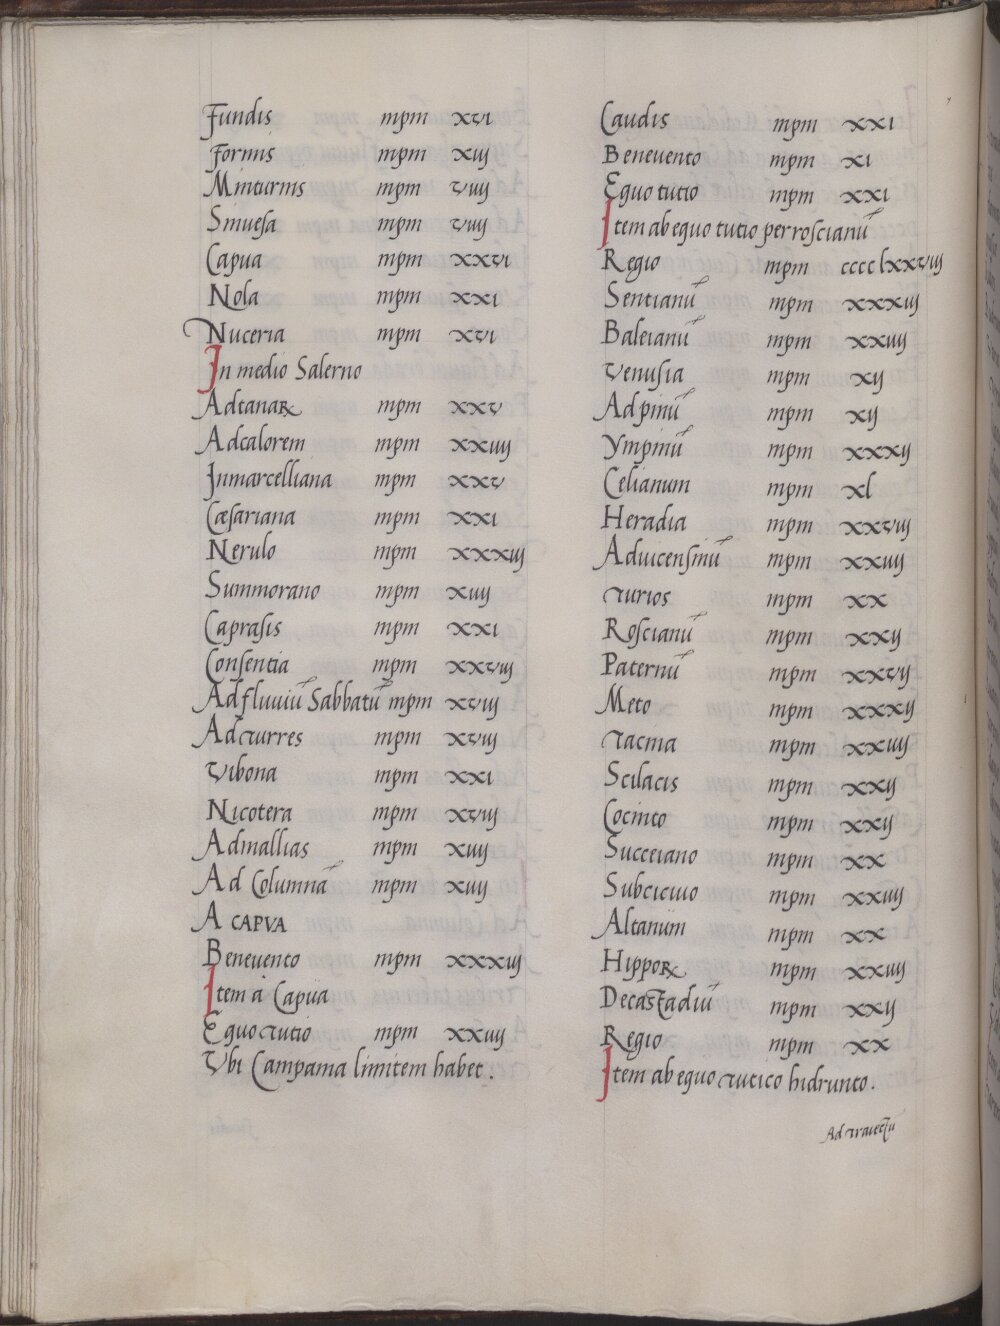 Fundis mpm xvi
Formis mpm xiij
Minturnis mpm viiij
Sinuesa mpm viiij
Capua mpm xxvi
Nola mpm xxi
Nuceria mpm xvi
In medio Salerno
Adtanaꝝ mpm xxv
Adcalorem mpm xxiiij
Inmarcelliana mpm xxv
Cæsariana mpm xxi
Nerulo mpm xxxiij
Summorano mpm xiiij
Caprasis mpm xxi
Consentia mpm xxviij
Adfluuiū Sabbatū mpm xviij
Adturres mpm xviij
Vibona mpm xxi
Nicotera mpm xviij
Admallias mpm xiiij
Ad Columnā mpm xiiij
A CAPVA
Beneuento mpm xxxiij
Item a Capua
Equo tutio mpm xxiiij
Vbi Campania limitem habet.
Caudis mpm xxi
Beneuento mpm xi
Equo tutio mpm xxi
Item ab equo tutio per roscianū
Regio mpm cccc lxxviij
Sentianū mpm xxxiij
Baleianū mpm xxiiij
Venusia mpm xij
Adpinū mpm xij
Ympinū mpm xxxij
Celianum mpm xl
Heradia mpm xxviij
Aduicensinū mpm xxiiij
Turios mpm xx
Roscianū mpm xxij
Paternū mpm xxvij
Meto mpm xxxij
Tacina mpm xxiiij
Scilacis mpm xxij
Cocinto mpm xxij
Succeiano mpm xx
Subciciuo mpm xxiiij
Altanum mpm xx
Hippoꝝ mpm xxiiij
Decastadiū mpm xxij
Regio mpm xx
Item ab equo tutico hidrunto.
Ad trauectū